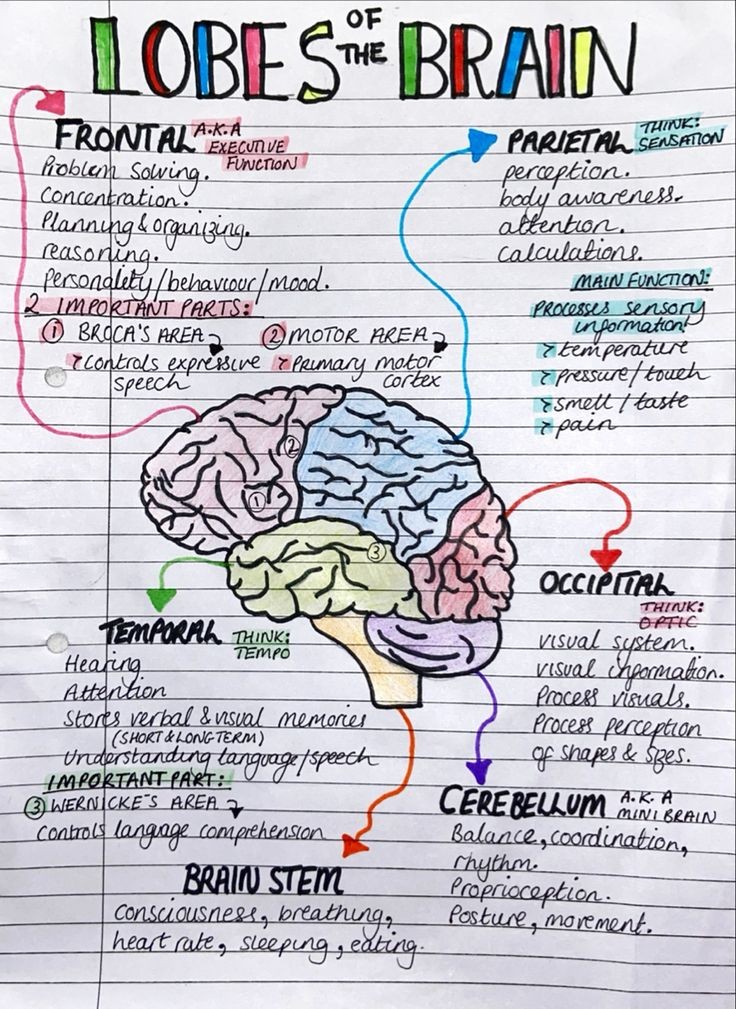 LOBES OF THE BRAIN
FRONTAL A.K.A EXECUTIVE FUNCTION
Problem Solving.
Concentration.
Planning & organizing.
reasoning.
Personality/behaviour/mood.
2 IMPORTANT PARTS:
① BROCA'S AREA
controls expressive speech
② MOTOR AREA
Primary motor cortex
PARIETAL THINK: SENSATION
perception.
body awareness.
attention.
calculations.
MAIN FUNCTION:
PROCESSES sensory
information!
temperature
pressure/touch
smell/taste
pain
①
②
③
OCCIPITAL
THINK:
OPTIC
visual system.
visual information.
Process visuals.
Process perception
of shapes & sizes.
TEMPORAL THINK: TEMPO
Hearing
Attention
Stores verbal & visual memories
(SHORT & LONG TERM)
Understanding language/speech
IMPORTANT PART:
③ WERNICKE'S AREA
Controls langage comprehension
CEREBELLUM A.K.A MINI BRAIN
Balance, coordination,
rhythm.
Proprioception.
Posture, movement.
BRAIN STEM
Consciousness, breathing,
heart rate, sleeping, eating.